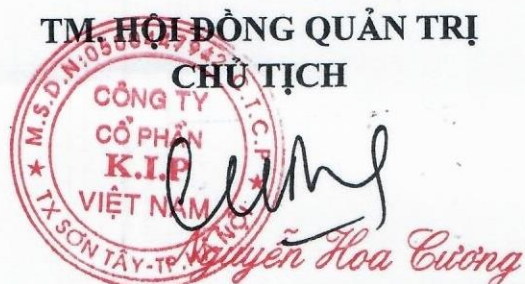 TM. HỘI ĐỒNG QUẢN TRỊ
CHỦ TỊCH
CÔNG TY
CỔ PHẦN
K.I.P
VIỆT NAM
TX SƠN TÂY-TP.
Nguyễn Hoa Cương